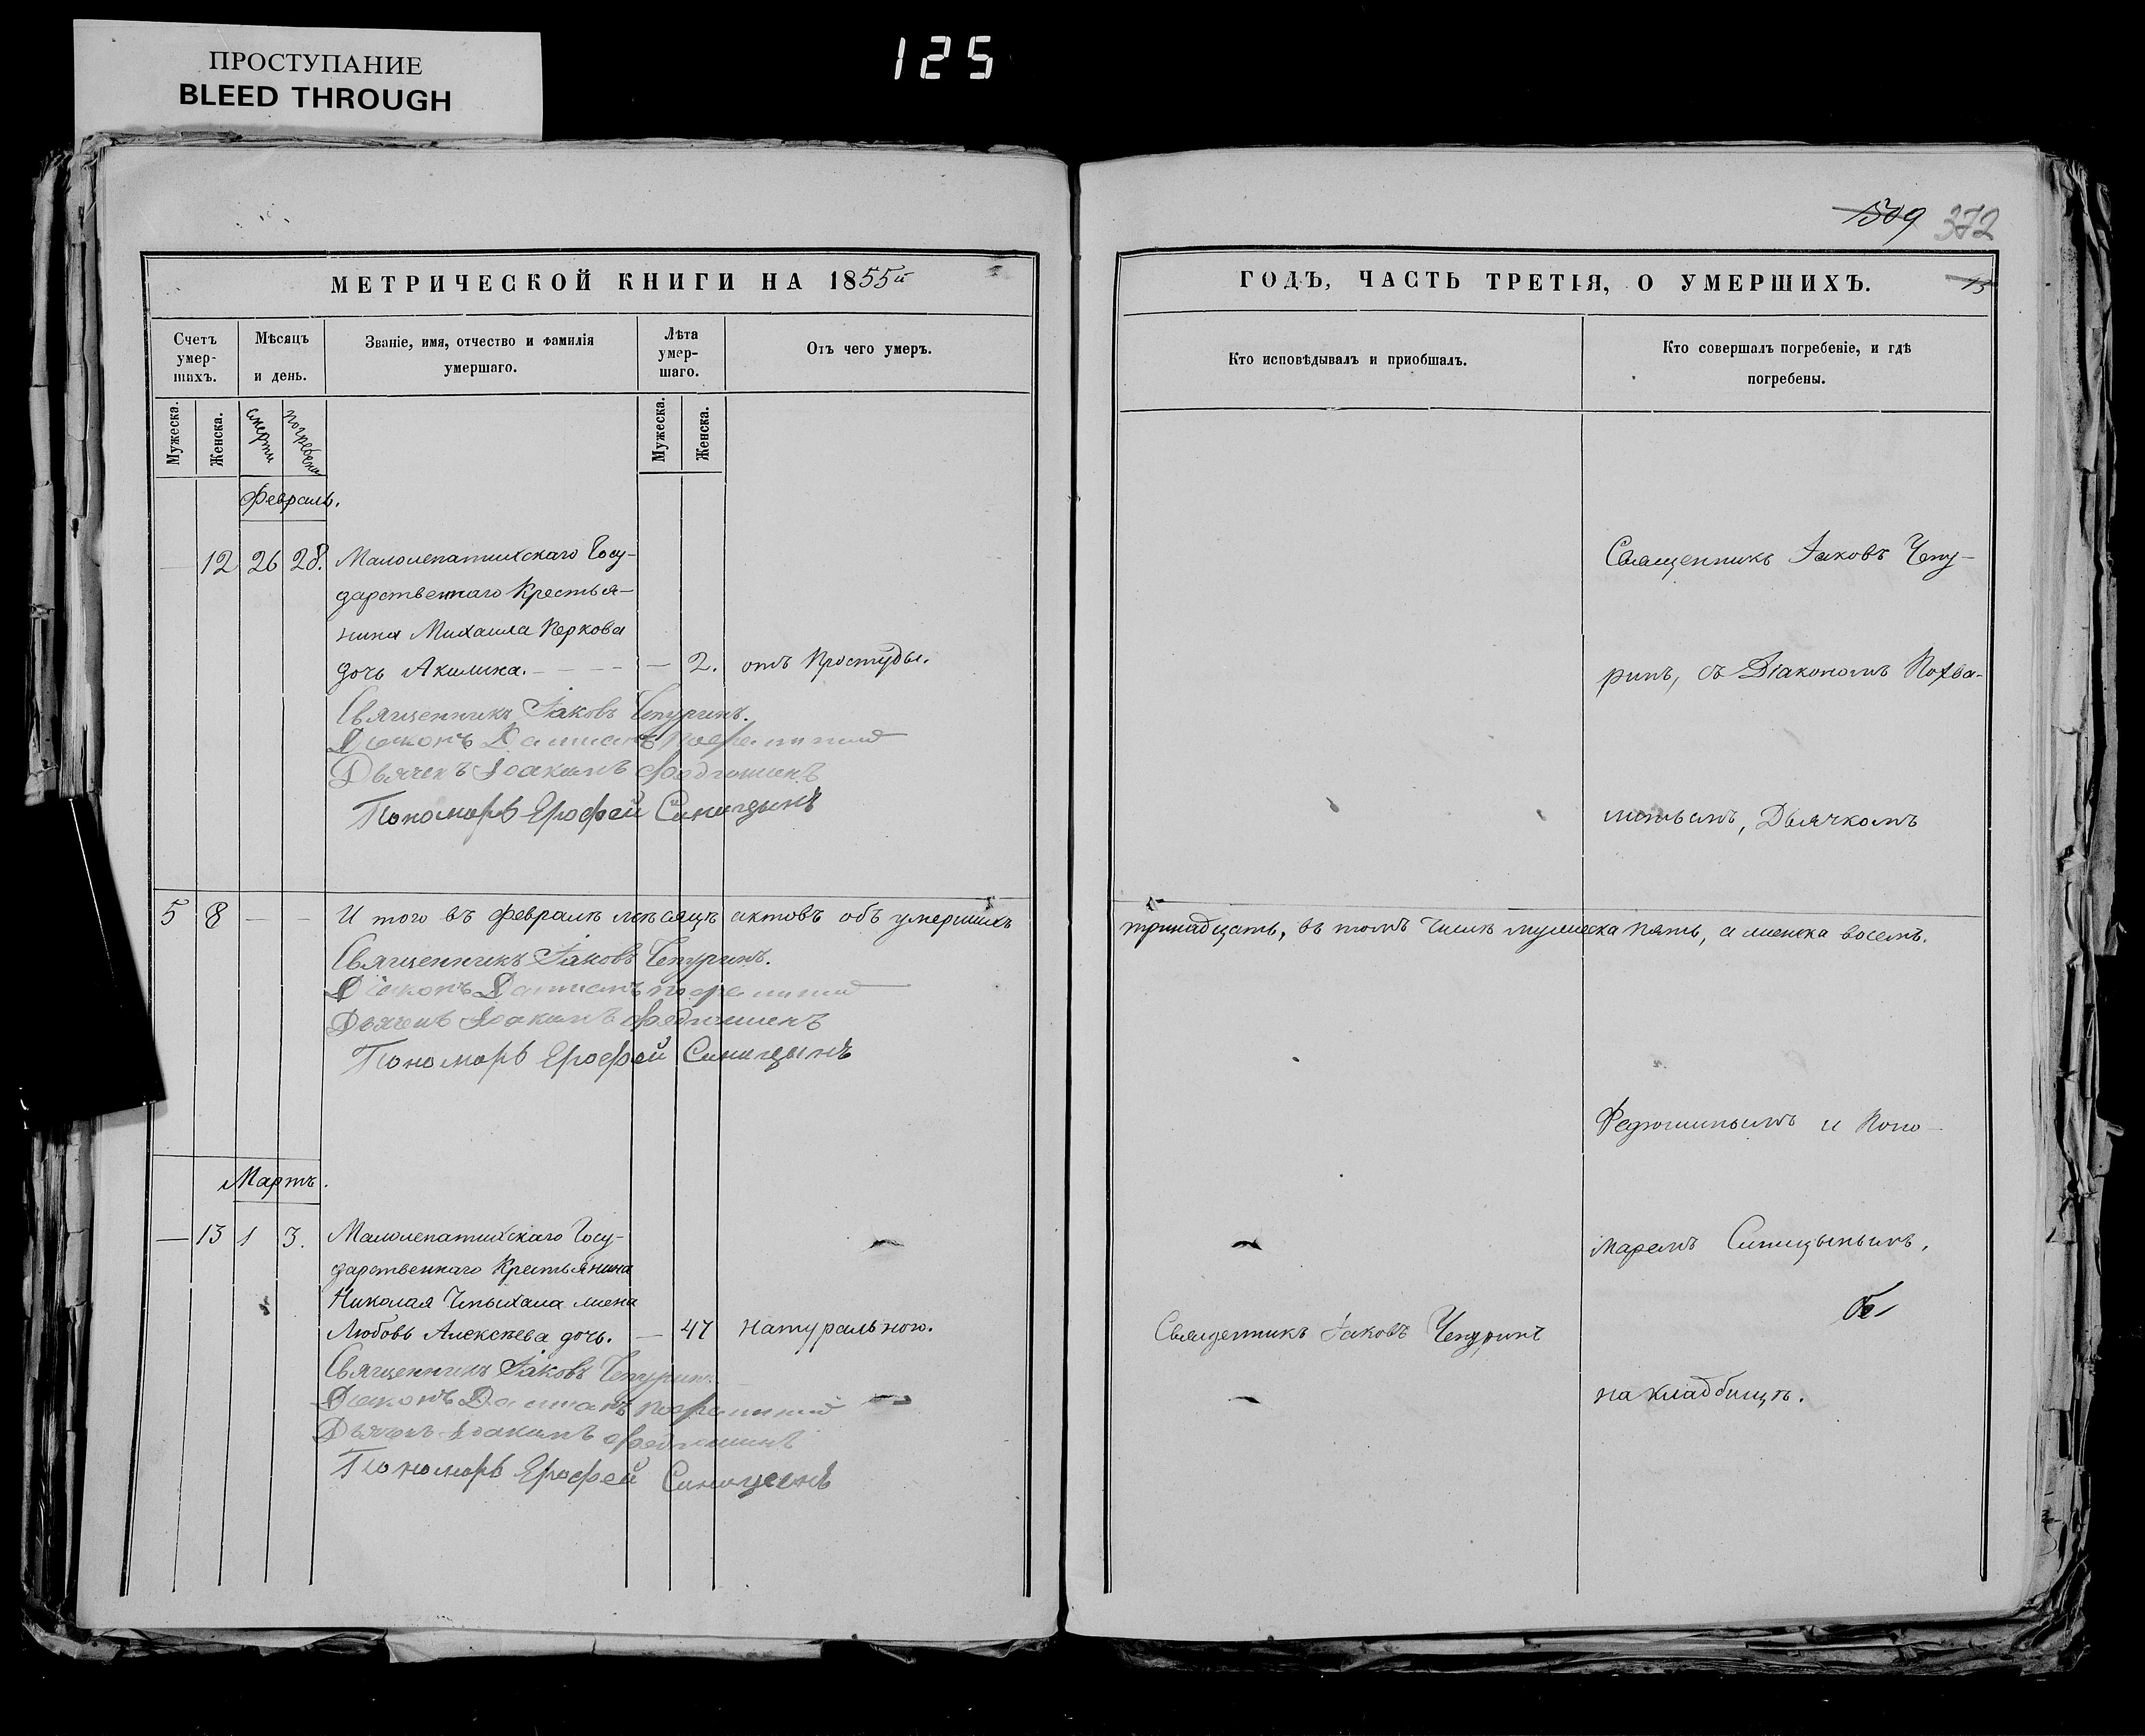 ПРОСТУПАНИЕ
BLEED THROUGH
125
1509 372
МЕТРИЧЕСКОЙ КНИГИ НА 1855й
Счетъ умер-шихъ.
Мѣсяцъ и день.
Званіе, имя, отчество и фамилія умершаго.
Лѣта умер-шаго.
Отъ чего умеръ.
Мужеска.
Женска.
смерти
погребенія
Мужеска.
Женска.
Февраль.
— 12 26 28. Малолепатихскаго Госу-
дарственнаго Крестья-
нина Михаила Перкова
дочь Акилина. — — 2. отъ простуды.
Священникъ Іаковъ Чепуринъ.
Діаконъ Даміанъ
Дьячекъ Іоакимъ Федюшинъ
Пономарь Ерофей Синицынъ
5 8 — — И того въ Февралѣ мѣсяцѣ актовъ объ умершихъ
Священникъ Іаковъ Чепуринъ.
Діаконъ Даміанъ
Дьячекъ Іоакимъ Федюшинъ
Пономарь Ерофей Синицынъ
Мартъ.
— 13 1 3. Малолепатихскаго Госу-
дарственнаго Крестьянина
Николая жена
Любовь Алексѣева дочь. — 47 натурально.
Священникъ Іаковъ Чепуринъ.
Діаконъ Даміанъ
Дьячекъ Іоакимъ Федюшинъ
Пономарь Ерофей Синицынъ
ГОДЪ, ЧАСТЬ ТРЕТІЯ, О УМЕРШИХЪ.
13
Кто исповѣдывалъ и приобшалъ.
Кто совершалъ погребеніе, и гдѣ
погребены.
Священникъ Іаковъ Чепу-
ринъ, съ Діакономъ Похва-
литымъ, Дьячкомъ
тринадцать, въ томъ числѣ мужеска пять, а женска восемь.
Федюшинымъ и Поно-
маремъ Синицынымъ,
Священникъ Іаковъ Чепуринъ
на кладбищѣ.